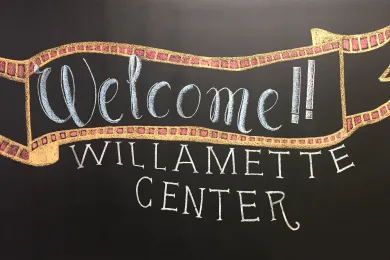 Welcome!!
WILLAMETTE
CENTER